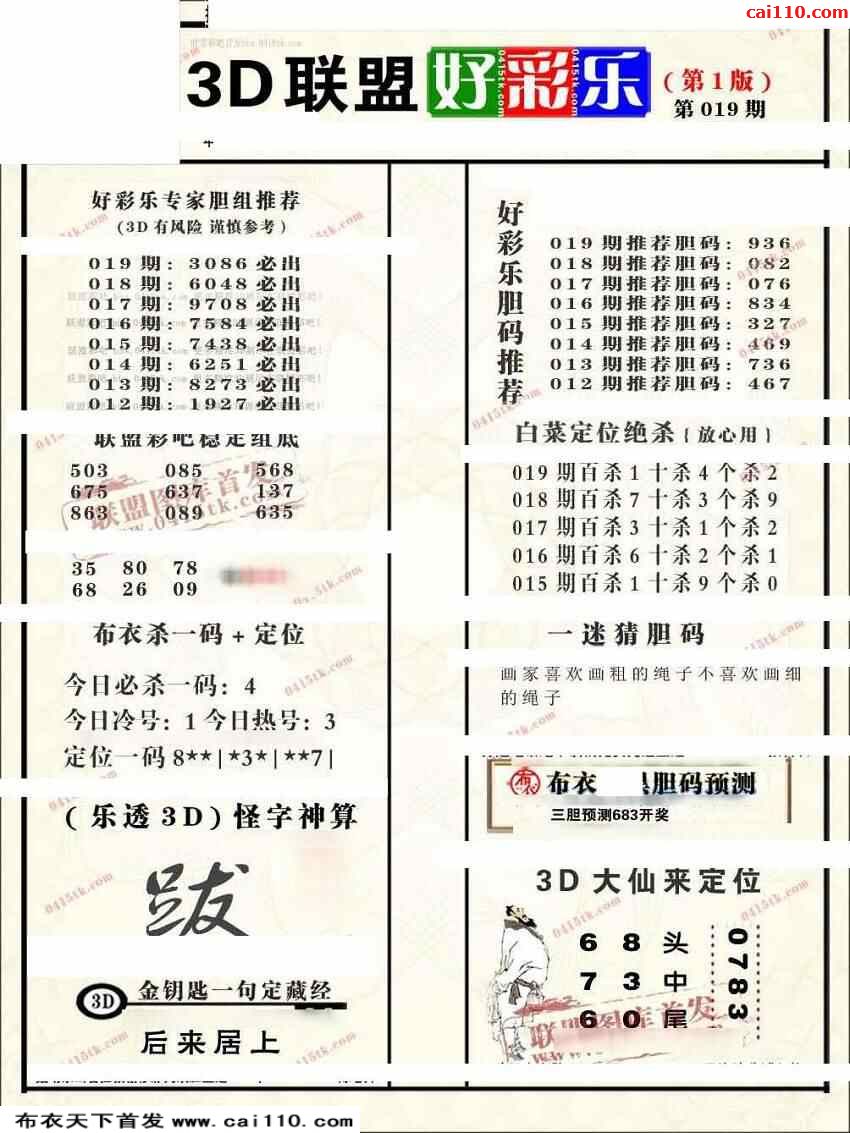 cai110.com
3D联盟好彩乐(第1版)
第019期
好彩乐专家胆组推荐
(3D有风险 谨慎参考)
019期:3086必出
018期:6048必出
017期:9708必出
016期:7584必出
015期:7438必出
014期:6251必出
013期:8273必出
012期:1927必出
联盟彩吧稳定组底
503 085 568
675 637 137
863 089 635
联盟图库首发
www.0415tk.com
35 80 78
68 26 09
布衣杀一码+定位
今日必杀一码:4
今日冷号:1 今日热号:3
定位一码8**|*3*|**7|
(乐透3D)怪字神算
跋
3D 金钥匙一句定藏经
后来居上
好彩乐胆码推荐
019期推荐胆码:936
018期推荐胆码:082
017期推荐胆码:076
016期推荐胆码:834
015期推荐胆码:327
014期推荐胆码:469
013期推荐胆码:736
012期推荐胆码:467
白菜定位绝杀{放心用}
019期百杀1十杀4个杀2
018期百杀7十杀3个杀9
017期百杀3十杀1个杀2
016期百杀6十杀2个杀1
015期百杀1十杀9个杀0
一迷猜胆码
画家喜欢画粗的绳子不喜欢画细
的绳子
布衣 胆码预测
三胆预测683开奖
3D大仙来定位
6 8 头
7 3 中
6 0 尾
0783
联盟图库首发
布衣天下首发 www.cai110.com